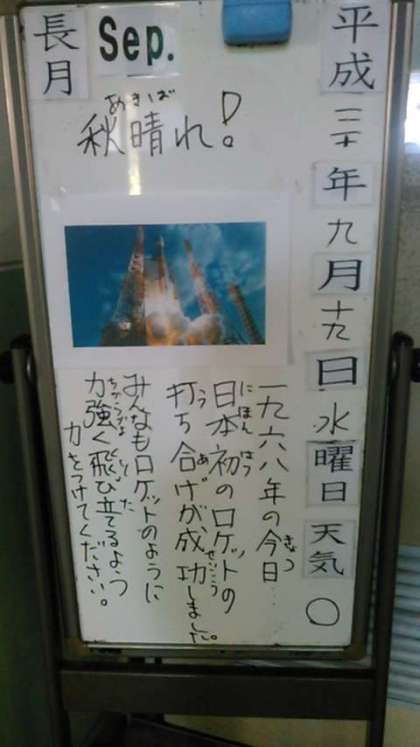 平成三十年九月十九日水曜日天気○
Sep.
長月
あきば
秋晴れ！
一九六八年の今日
きょう
日本初のロケットの
にほんはつ
打ち合げが、成功しました。
う あ せいこう
みんなもロケットのように
力強く飛び立てるよう
力をつけてください。